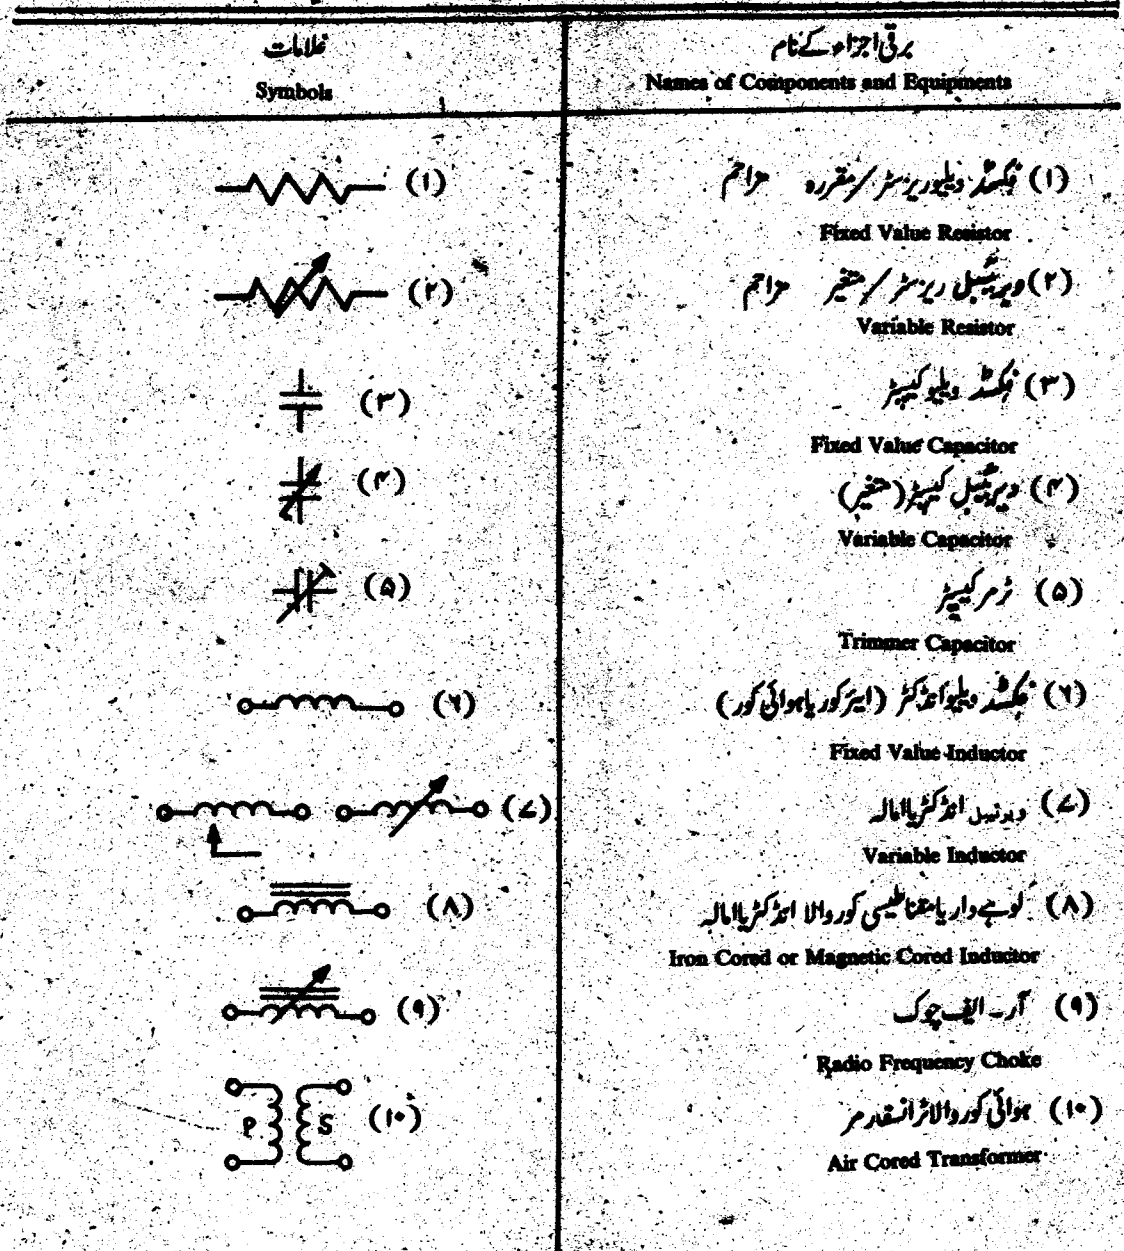 برقی اجزاء کے نام
Names of Components and Equipments
علامات
Symbols
(۱) فکسڈ ویلیو ریزسٹر / مقررہ مزاحم
Fixed Value Resistor
(۱)
(۲) ویری ایبل ریزسٹر / متغیر مزاحم
Variable Resistor
(۲)
(۳) فکسڈ ویلیو کیپسٹر
Fixed Value Capacitor
(۳)
(۴) ویری ایبل کیپسٹر (متغیر)
Variable Capacitor
(۴)
(۵) ٹرمر کیپسٹر
Trimmer Capacitor
(۵)
(۶) فکسڈ ویلیو انڈکٹر (ایئر کور یا ہوائی کور)
Fixed Value Inductor
(۶)
(۷) ویری ایبل انڈکٹر یا امالہ
Variable Inductor
(۷)
(۸) لوہے دار یا مقناطیسی کور والا انڈکٹر یا امالہ
Iron Cored or Magnetic Cored Inductor
(۸)
(۹) آر۔ ایف چوک
Radio Frequency Choke
(۹)
(۱۰) ہوائی کور والا ٹرانسفارمر
Air Cored Transformer
(۱۰)
P S